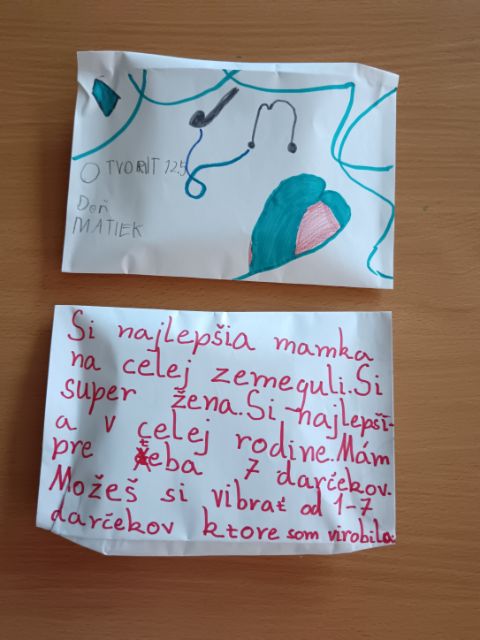 OTVORIŤ 12.5
Deň
MATIEK
Si najlepšia mamka
na celej zemeguli. Si
super žena. Si najlepši-
a v celej rodine. Mám
pre ťeba 7 darčekov.
Možeš si vibrať od 1-7
darčekov ktore som virobila.